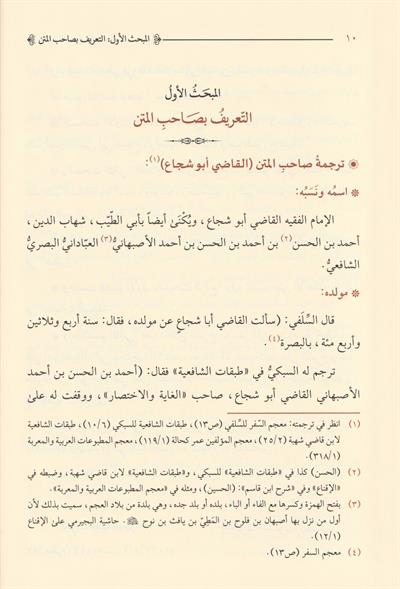 ١٠ المبحث الأول: التعريف بصاحب المتن
المبحَثُ الأولُ
التّعريفُ بصَاحبِ المتن
ترجمةُ صاحبِ المتن (القاضي أبو شجاع)(١):
* اسمُه ونَسَبُه:
الإمام الفقيه القاضي أبو شجاع، ويُكْنَى أيضاً بأبي الطَّيِّب، شهاب الدين،
أحمد بن الحسن(٢) بن أحمد بن الحسن بن أحمد الأصبهانيُّ(٣) العبّادانيُّ البصريُّ
الشافعيُّ.
* مولده:
قال السِّلَفي: (سألت القاضي أبا شجاعٍ عن مولده، فقال: سنة أربع وثلاثين
وأربع مئة، بالبصرة)(٤).
ترجم له السبكيُّ في «طبقات الشافعية» فقال: (أحمد بن الحسن بن أحمد
الأصبهاني القاضي أبو شجاع، صاحب «الغاية والاختصار»، ووقفت له على
(١) انظر في ترجمته: معجم السّفر للسِّلفي (ص١٣)، طبقات الشافعية للسبكي (١٠/٦)، طبقات الشافعية
لابن قاضي شهبة (٢٥/٢)، معجم المؤلفين عمر كحالة (١١٩/١)، معجم المطبوعات العربية والمعربة
(٣١٨/١).
(٢) (الحسن) كذا في «طبقات الشافعية» للسبكي، و«طبقات الشافعية» لابن قاضي شهبة، وضبطه في
«الإقناع» وفي «شرح ابن قاسم»: (الحسين)، ومثله في «معجم المطبوعات العربية والمعربة».
(٣) بفتح الهمزة وكسرها مع الفاء أو الباء، بلده أو بلد جده، وهي بلدة من بلاد العجم، سميت بذلك لأن
أول من نزل بها أصبهان بن فلوح بن المَطِيّ بن يافث بن نوح ﷺ. حاشية البجيرمي على الإقناع
(١٢/١).
(٤) معجم السفر (ص١٣).